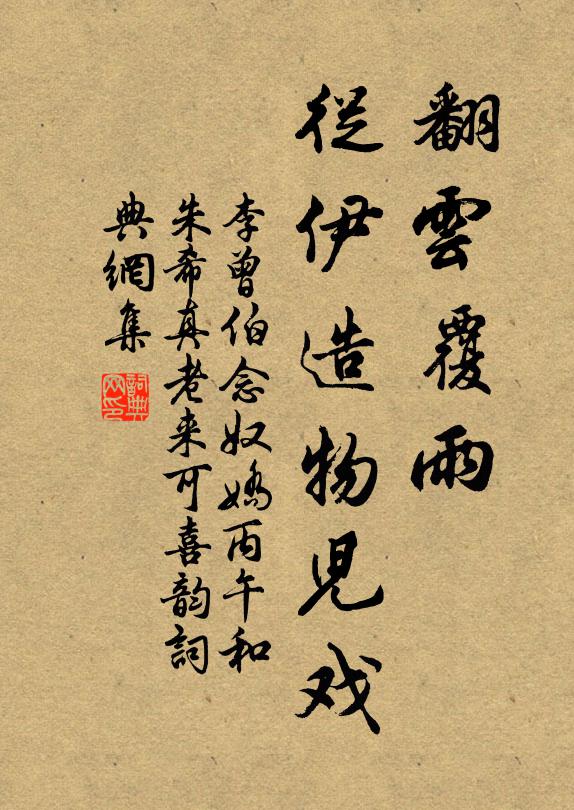 翻雲覆雨
從伊造物児戏
李曾伯念奴嬌丙午和
朱希真老来可喜韵詞
典網集
詞典网印